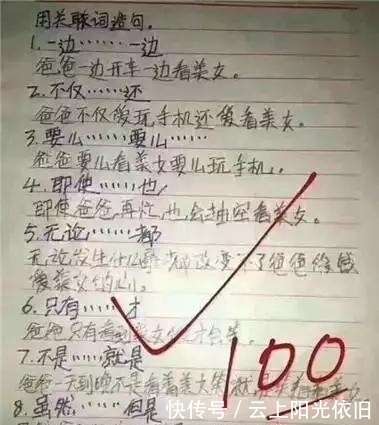 用关联词造句.
1.一边……一边
爸爸一边开车一边看美女。
2.不仅……还
爸爸不仅爱玩手机还爱看美女。
3.要么……要么……
爸爸要么看美女要么玩手机。
4.即使……也
即使爸爸再忙,也会抽空看美女。
5.无论……都
无论发生什么 都改变不了爸爸
爱美女的心。
6.只有……才
爸爸只有看到美女 才会笑。
7.不是……就是
爸爸一天到晚不是看着美女笑就是
8.虽然……但是
100
快传号/云上阳光依旧